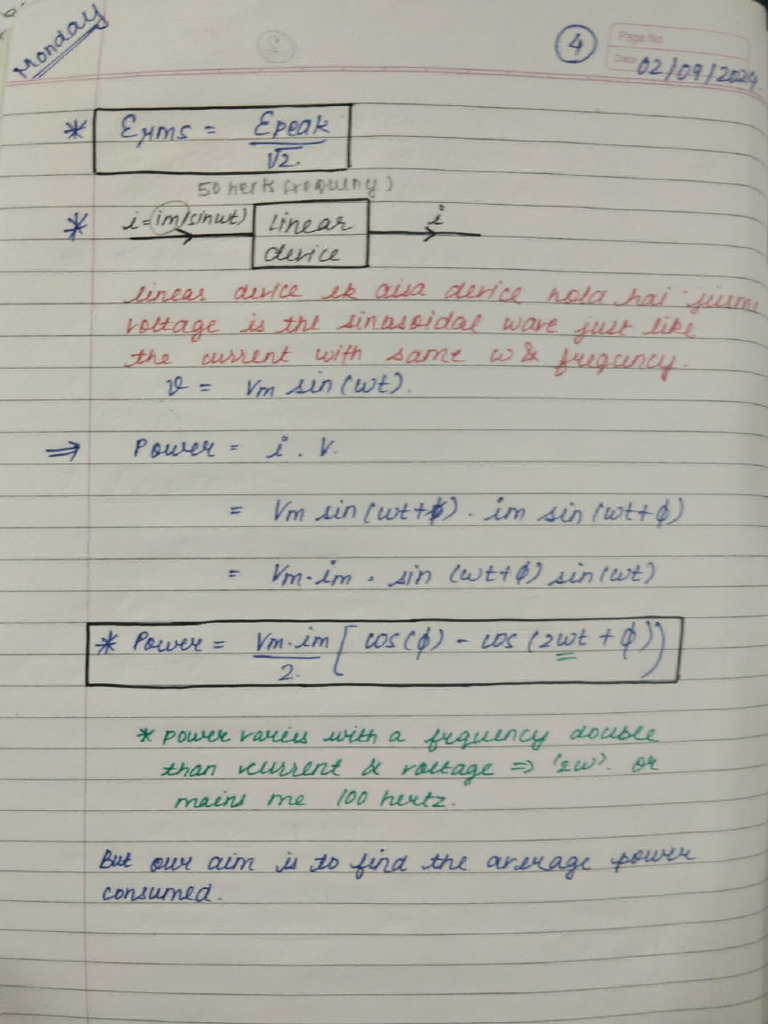 Monday
4
Page No.
Date 02/09/2024
* Erms = Epeak / √2
50 hertz frequency)
* i = im(sinωt)
Linear device
i
linear device ek aisa device hota hai jisme
voltage is the sinusoidal wave just like
the current with same ω & frequncy.
v = Vm sin(ωt).
⇒ Power = i . V.
= Vm sin(ωt+ϕ) · im sin(ωt+ϕ)
= Vm·im · sin (ωt+ϕ) sin(ωt)
* Power = Vm·im / 2 [ cos(ϕ) - cos (2ωt + ϕ))
* power varies with a frequency double
than current & voltage ⇒ '2ω'. or
mains me 100 hertz.
But our aim is to find the average power
consumed.